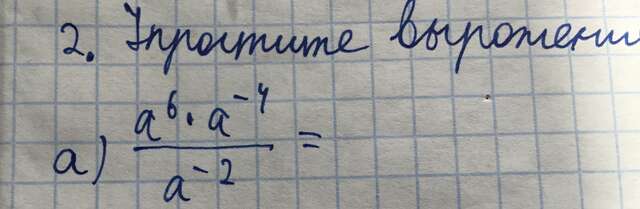 2. Упростите выражени
а) \frac{a^6 \cdot a^{-4}}{a^{-2}} =